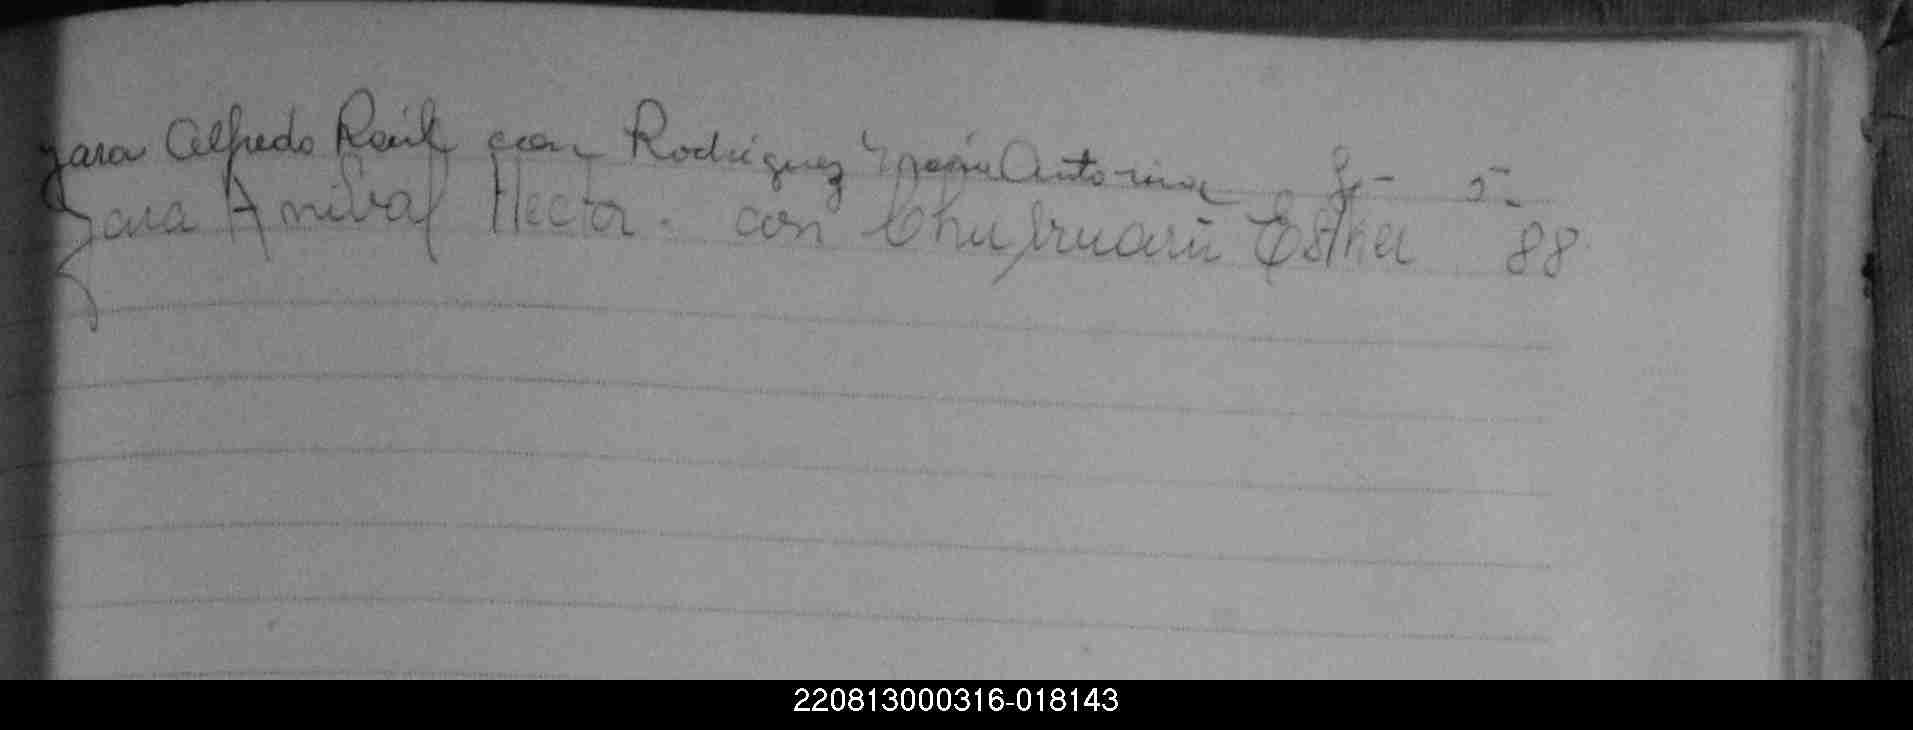 Yara Alfredo Raúl con Rodriguez María Antonina 5-
Yara Anibal Hector. con Esther 88
220813000316-018143